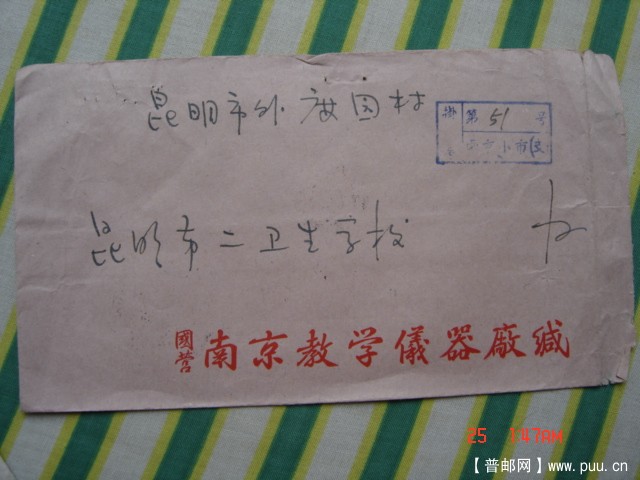 昆明市外
园村
掛 第51号
昆明市二卫生学校
國营 南京教学儀器廠缄
25 1:47AM
【普邮网】www.puu.cn